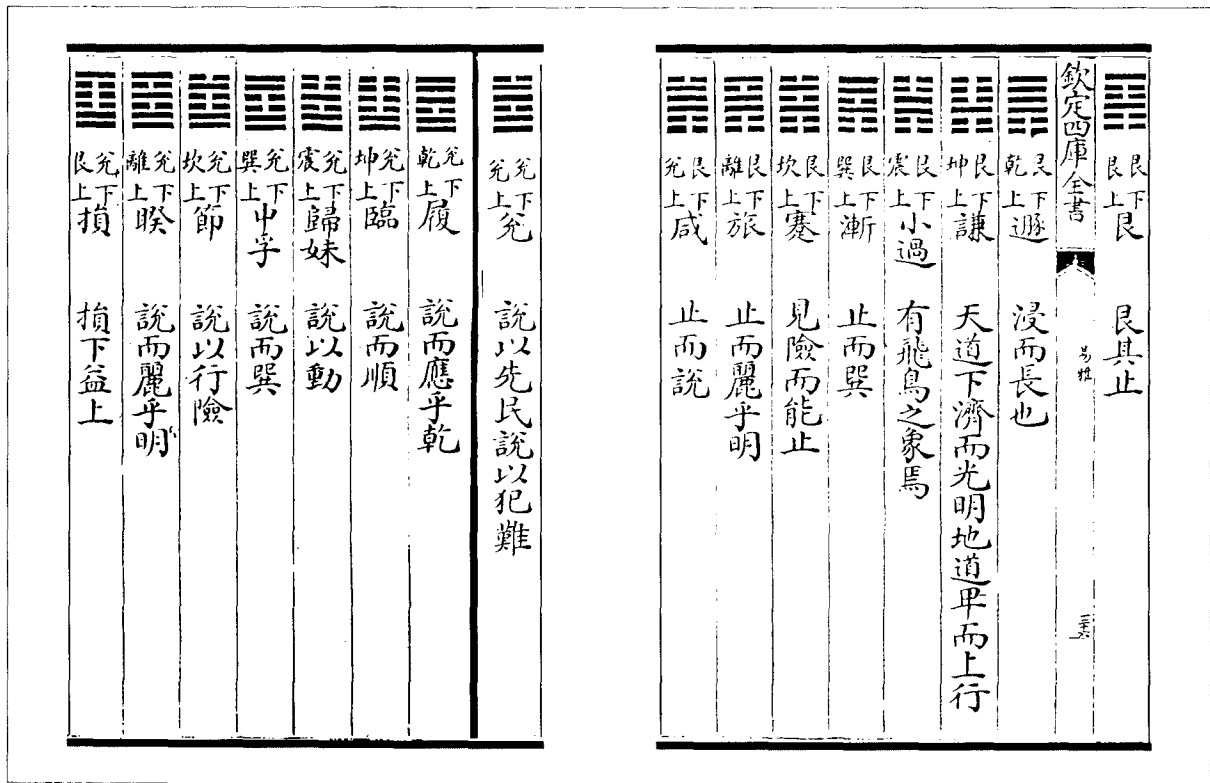 艮下艮上艮 艮其止
欽定四庫全書 易雅 三十六
艮下乾上遯 浸而長也
艮下坤上謙 天道下濟而光明地道卑而上行
艮下震上小過 有飛鳥之象焉
艮下巽上漸 止而巽
艮下坎上蹇 見險而能止
艮下離上旅 止而麗乎明
艮下兊上咸 止而說
兊下兊上兊 說以先民說以犯難
兊下乾上履 說而應乎乾
兊下坤上臨 說而順
兊下震上歸妹 說以動
兊下巽上中孚 說而巽
兊下坎上節 說以行險
兊下離上睽 說而麗乎明
兊下艮上損 損下益上